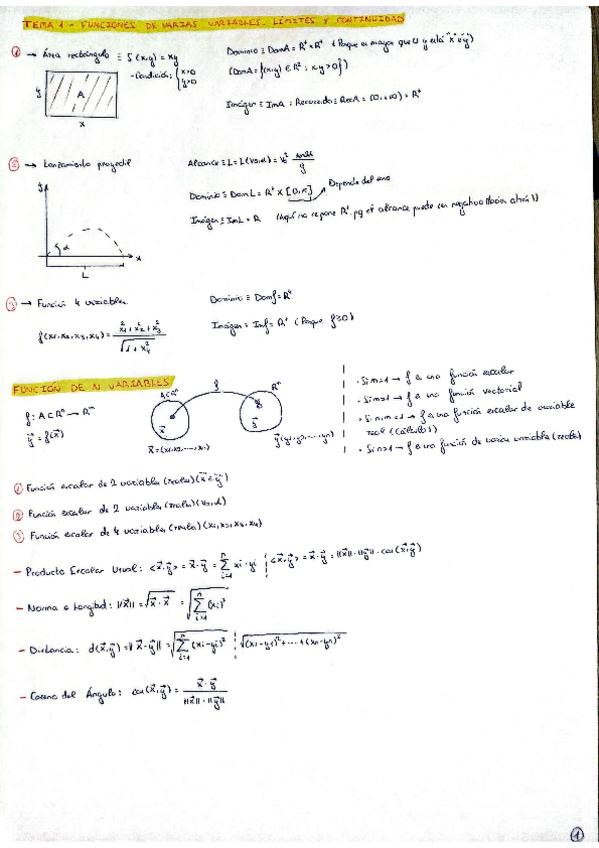 TEMA 1 - FUNCIONES DE VARIAS VARIABLES. LÍMITES Y CONTINUIDAD
① → Área rectángulo ≡ S(x,y) = xy
- Condición: {x>0 y>0
y A x
Dominio ≡ DomA = R⁺ x R⁺ (Porque es mayor que 0 y está "x" e "y")
(DomA = {(x,y) ∈ R²; x,y>0})
Imágen ≡ ImA = Recorrido ≡ RecA = (0,+∞) = R⁺
② → Lanzamiento proyectil
y α L x
Alcance ≡ L = L(v₀,α) = v₀² sin2α / g
Dominio ≡ DomL = R⁺ x [0,π] Depende del seno
Imágen ≡ ImL = R (Aquí no se pone R⁺ pq el alcance puede ser negativo (hacia atrás))
③ → Función 4 variables
f(x₁,x₂,x₃,x₄) = x₁² + x₂² + x₃² / √(1 + x₄²)
Dominio ≡ Domf = R⁴
Imágen ≡ Imf = R⁺ (Porque f≥0)
FUNCIÓN DE N VARIABLES
f: A⊂Rⁿ → Rᵐ
y⃗ = f(x⃗)
A⊂Rⁿ f Rᵐ
x⃗ y⃗
x⃗ = (x₁,x₂,...,xₙ) y⃗(y₁,y₂,...,yₘ)
· Si m=1 → f es una función escalar
· Si m>1 → f es una función vectorial
· Si n,m=1 → f es una función escalar de variable
real (Cálculo 1)
· Si n>1 → f es una función de varias variables (reales)
① Función escalar de 2 variables (reales) (x⃗ e y⃗)
② Función escalar de 2 variables (reales) (v₀,α)
③ Función escalar de 4 variables (reales) (x₁,x₂,x₃,x₄)
- Producto Escalar Usual: <x⃗,y⃗> = x⃗·y⃗ = Σ xi·yi ¦ <x⃗,y⃗> = x⃗·y⃗ = ||x⃗||·||y⃗||·cos(x⃗,y⃗)
- Norma o Longitud: ||x⃗|| = √(x⃗·x⃗) = √(Σ (xi)²)
- Distancia: d(x⃗,y⃗) = ||x⃗-y⃗|| = √(Σ (xi-yi)²) ¦ √((x₁-y₁)²+....+(xn-yn)²)
- Coseno del Ángulo: cos(x⃗,y⃗) = x⃗·y⃗ / ||x⃗||·||y⃗||
①